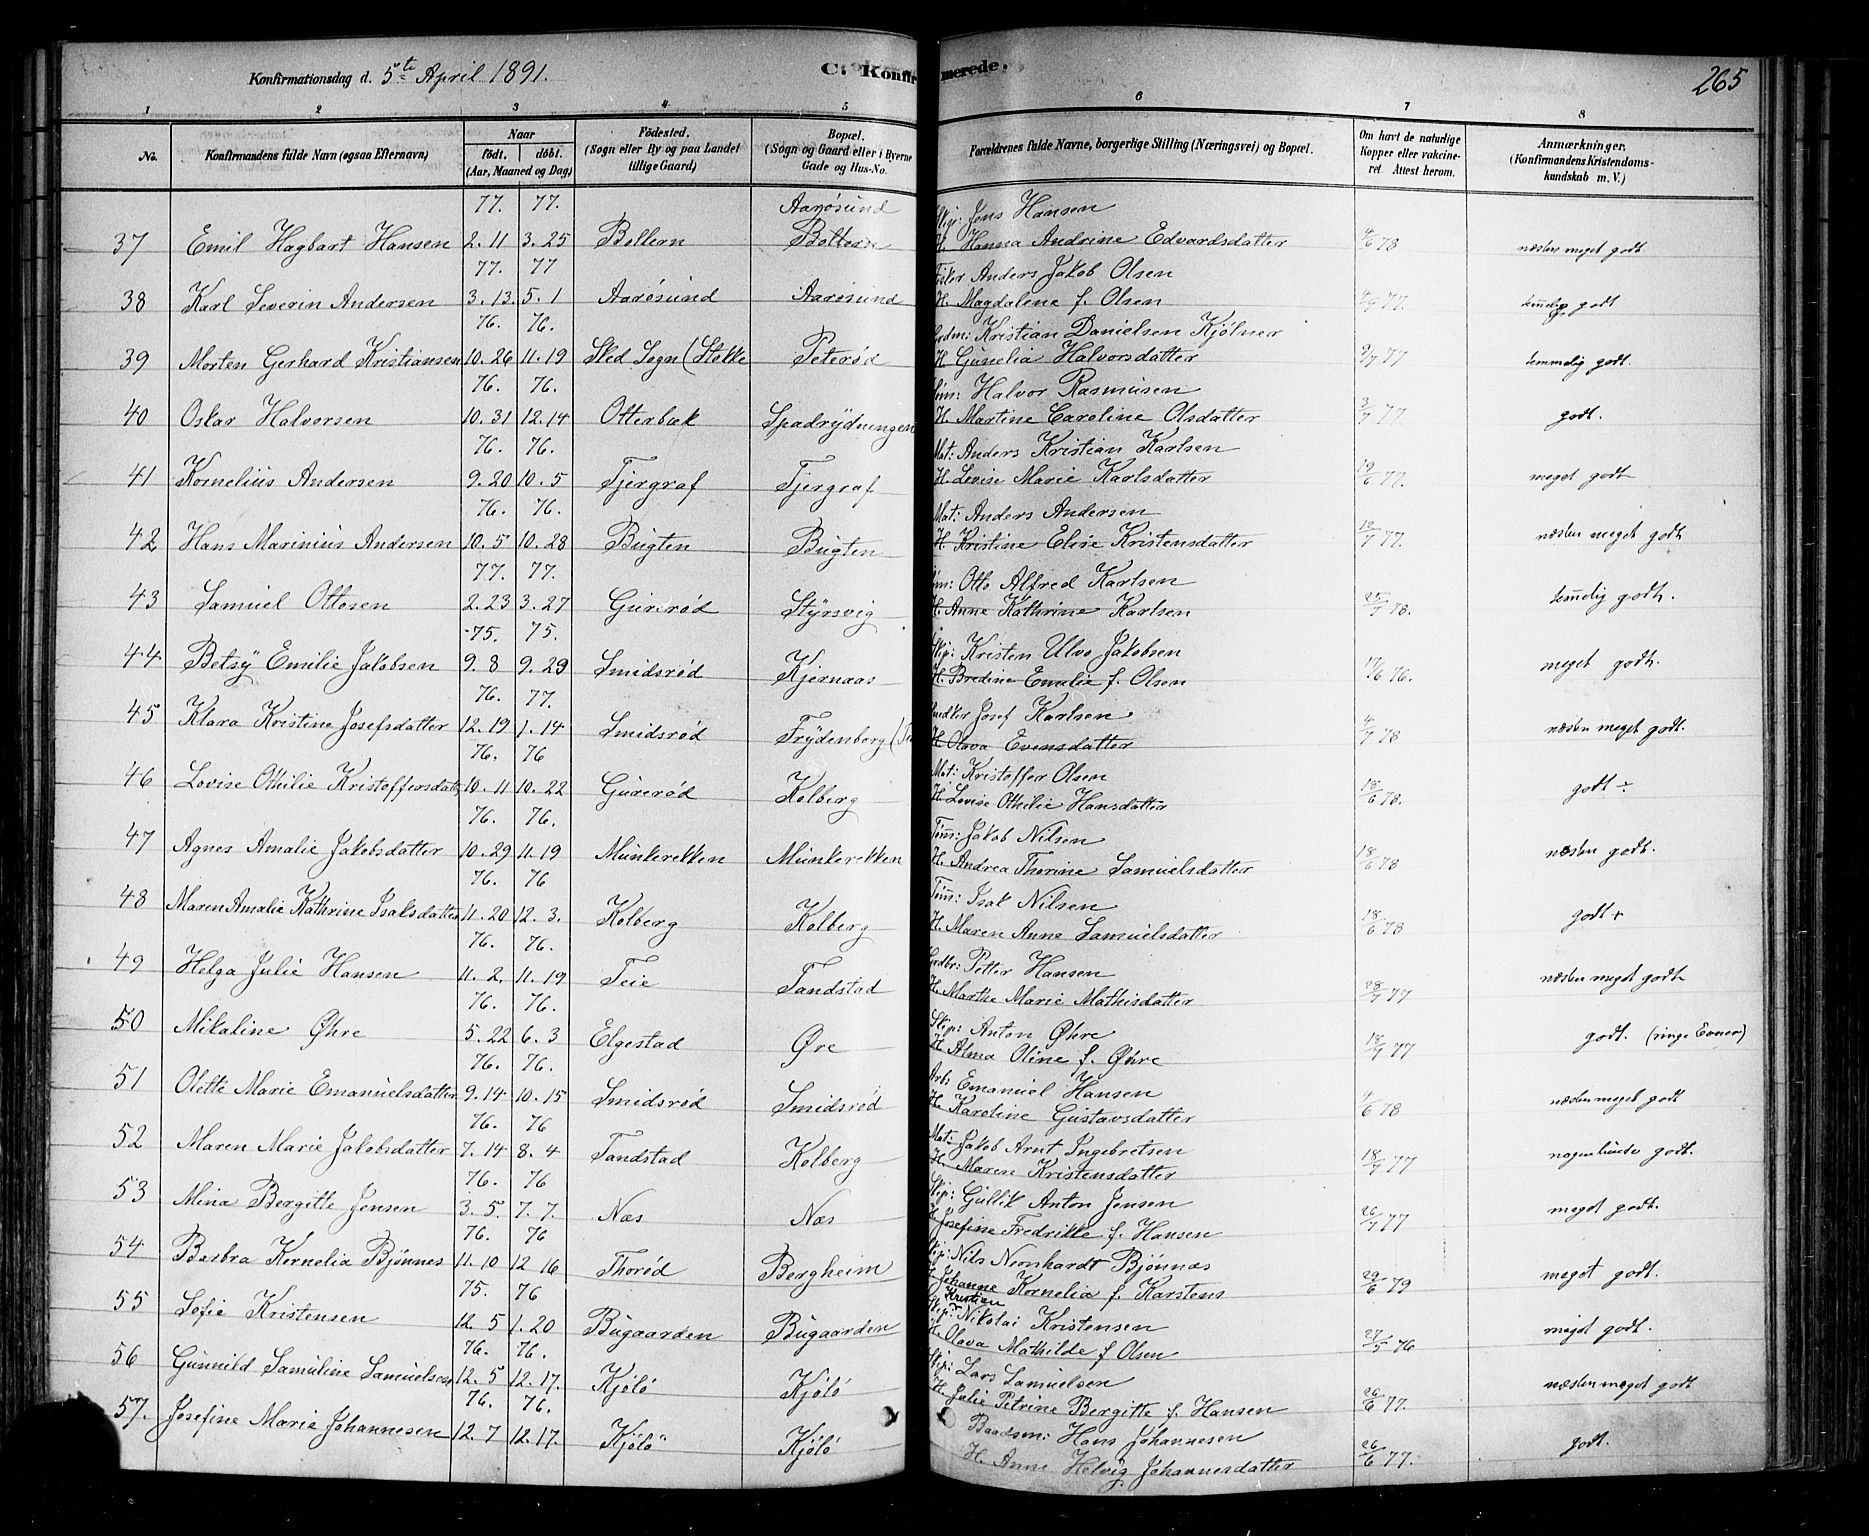 Konfirmationsdag d. 5te April 1891.
C. Konfirmerede.
265
1 2 3 4 5 6 7 8
No. Konfirmandens fulde Navn (ogsaa Efternavn) Naar født. døbt. (Aar, Maaned og Dag) Fødested. (Sogn eller By og paa Landet tillige Gaard) Bopæl. (Sogn og Gaard eller i Byerne Gade og Hus-No. Forældrenes fulde Navne, borgerlige Stilling (Næringsvei) og Bopæl. Om havt de naturlige Kopper eller vakcineret Attest herom. Anmærkninger. (Konfirmandens Kristendomskundskab m. V.)
77. 77. Aarøsund Skip: Jens Hansen
37 Emil Hagbart Hansen 2. 11 3. 25 Bollern Boltern H. Hanna Andrine Edvardsdatter 4/6 78 næsten meget godt
77. 77 Fisker Anders Jakob Olsen
38 Karl Severin Andersen 3. 13. 5. 1 Aarøsund Aarøsund H. Magdalene f. Olsen 77. godt
76. 76. Kristian Danielsen Kjølner
39 Morten Gerhard Kristiansen 10. 26 11. 19 Sled Sogn (Stokke Peterød H. Gunelia Halvorsdatter 9/7 77 temmelig godt.
76. 76. Halvor Rasmusen
40 Oskar Halvorsen 10. 31 12. 14 Otterbæk Spadrydningen H. Martine Caroline Olsdatter 3/7 77. godt.
76. 76. Mat: Anders Kristian Karlsen
41 Kornelius Andersen 9. 20 10. 5 Tjergraf Tjergraf H. Lovise Marie Karlsdatter 19/6 77. meget godt
76. 76. Mat: Anders Andersen
42 Hans Marinius Andersen 10. 5 10. 28 Bugten Bugten H. Kristine Elise Kristensdatter 13/7 77. næsten meget godt
77. 77. Otto Alfred Karlsen
43 Samuel Ottosen 2. 23 3. 27 Gurerød Styrsvig H. Anne Kathrine Karlsen 25/7 78. godt.
75. 75. Skip: Kristen Ulvo Jakobsen
44 Betsy Emilie Jakobsen 9. 8 9. 29 Smidsrød Kjernaas H. Bredine Emalie f. Olsen 17/6 76. meget godt.
76. 77. Josef Karlsen
45 Klara Kristine Josefsdatter 12. 19 1. 14 Smidsrød Frydenberg H. Olava Evensdatter 4/7 78 næsten meget godt.
76. 76 Mat: Kristoffer Olsen
46 Lovise Othilie Kristoffersdatter 10. 11 10. 22 Gurerød Kolberg H. Lovise Othilie Hansdatter 18/6 78. godt ÷
76. 76. Tøm: Jakob Nilsen
47 Agnes Amalie Jakobsdatter 10. 29 11. 19 Munkerekken Munkerekken H. Andrea Thorine Samuelsdatter 18/6 78 næsten godt.
76. 76 Tøm: Isak Nilsen
48 Maren Amalie Kathrine Isaksdatter 11. 20 12. 3. Kolberg Kolberg H. Maren Anne Samuelsdatter 18/6 78 godt +
76. 76. Grdbr: Petter Hansen
49 Helga Julie Hansen 11. 2. 11. 19 Teie Tandstad H. Marthe Marie Mathisdatter 28/7 77 næsten meget godt
76. 76. Skip: Anton Øhre
50 Mikaline Øhre 5. 22 6. 3 Elgestad Øre H. Alma Oline f. Øhre 18/7 77 godt. (ringe Evner)
76. 76. Arb: Emanuel Hansen
51 Olette Marie Emanuelsdatter 9. 14 10. 15 Smidsrød Smidsrød H. Karoline Gustavsdatter 4/6 78 næsten meget godt
76. 76 Mat: Jakob Arnt Ingebretsen
52 Maren Marie Jakobsdatter 7. 14 8. 4 Tandstad Kolberg H. Maren Kristensdatter 18/7 77 nogenlunde godt.
76. 76 Skip: Gullik Anton Jensen
53 Mina Bergitte Jensen 3. 5. 7. 7. Næs Næs H. Josefine Fredrikke f. Hansen 26/7 77 meget godt.
76. 76 Skip: Nils Neonhardt Bjønnæs
54 Barbra Kornelia Bjønnes 11. 10 12 16 Thorød Bergheim H. Johanne Kornelia f. Karstens 29/6 79 meget godt.
75. 76 Skip: Kristian Nikolai Kristensen
55 Sofie Kristensen 12. 5 1. 20 Bugaarden Bugaarden H. Olava Mathilde f Olsen 27/5 76 meget godt.
76. 76. Skip: Lars Samuelsen
56 Gunnild Samuline Samuelsen 12. 5 12. 17. Kjølø Kjølø H. Julie Petrine Bergitte f. Hansen 26/6 77. næsten meget godt
76. 76. Baadsm: Hans Johannesen
57. Josefine Marie Johannesen 12. 7 12. 17. Kjølø Kjølø H. Anne Helvig Johannesdatter 26/6 77. godt.